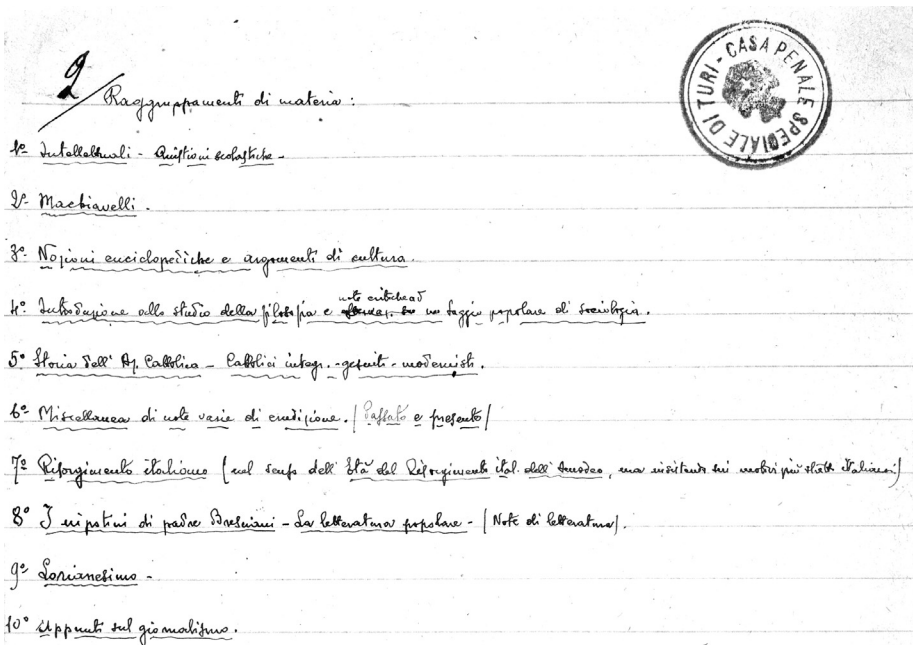 2
CASA PENALE SPECIALE DI TURI -
Raggruppamenti di materia:
1º Intellettuali - Quistioni scolastiche -
2º Machiavelli.
3º Nozioni enciclopediche e argomenti di cultura.
4º Introduzione allo studio della filosofia e note critiche ad un Saggio popolare di sociologia.
5º Storia dell'Az. Cattolica - Cattolici integr. - gesuiti - modernisti.
6º Miscellanea di note varie di erudizione. (Passato e presente)
7º Risorgimento italiano (nel senso dell'Età del Risorgimento ital. dell'Omodeo, ma insistendo sui motivi più strett. Italiani)
8º I nipotini di padre Bresciani - La letteratura popolare - (Note di letteratura).
9º Lorianesimo -
10º Appunti sul giornalismo.